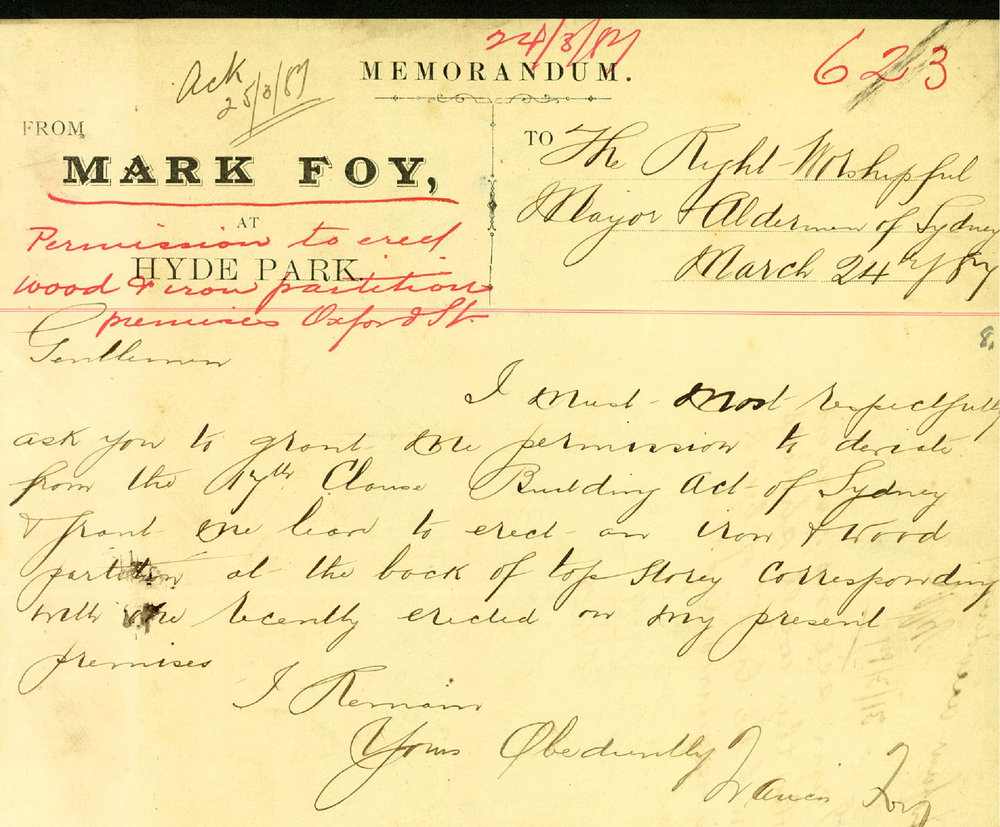 24/3/87
623
Ack
25/3/87
MEMORANDUM.
FROM
MARK FOY,
AT
HYDE PARK.
Permission to erect
wood & iron partition
premises Oxford St.
TO The Right Worshipful
Mayor & Aldermen of Sydney
March 24th / 87
8.
Gentlemen
I must most respectfully
ask you to grant me permission to deviate
from the 17th Clause Building Act of Sydney
& grant me leave to erect an iron & wood
partition at the back of top Storey Corresponding
with one recently erected on my present
premises
I Remain
Yours Obediently
Francis Foy